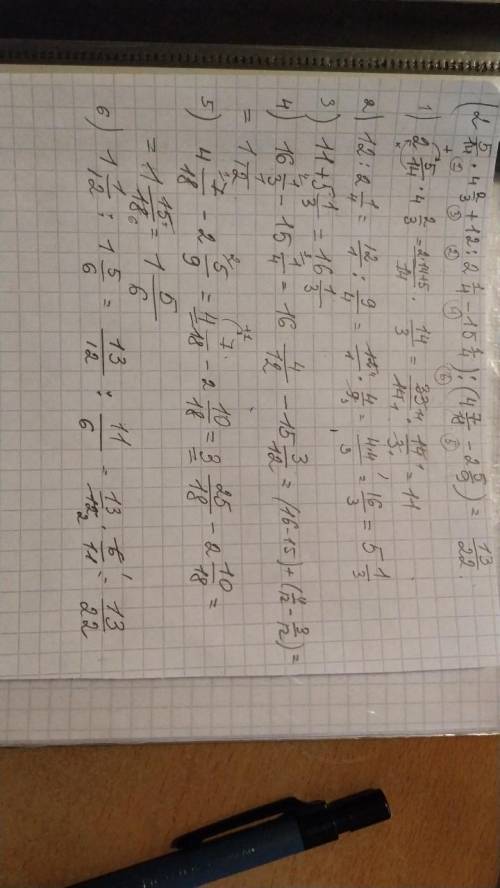 (2 5/14 · 4 2/3 + 12 : 2 1/4 - 15 1/4) : (4 7/18 - 2 5/9) = 13/22.
1) 2 5/14 · 4 2/3 = (2·14+5)/14 · 14/3 = 33/14 · 14/3 = 11
2) 12 : 2 1/4 = 12/1 : 9/4 = 12/1 · 4/9 = 16/3 = 5 1/3
3) 11 + 5 1/3 = 16 1/3
4) 16 1/3 - 15 1/4 = 16 4/12 - 15 3/12 = (16-15) + (4/12 - 3/12) =
= 1 1/12
5) 4 7/18 - 2 5/9 = 4 7/18 - 2 10/18 = 3 25/18 - 2 10/18 =
= 1 15/18 = 1 5/6
6) 1 1/12 : 1 5/6 = 13/12 : 11/6 = 13/12 · 6/11 = 13/22